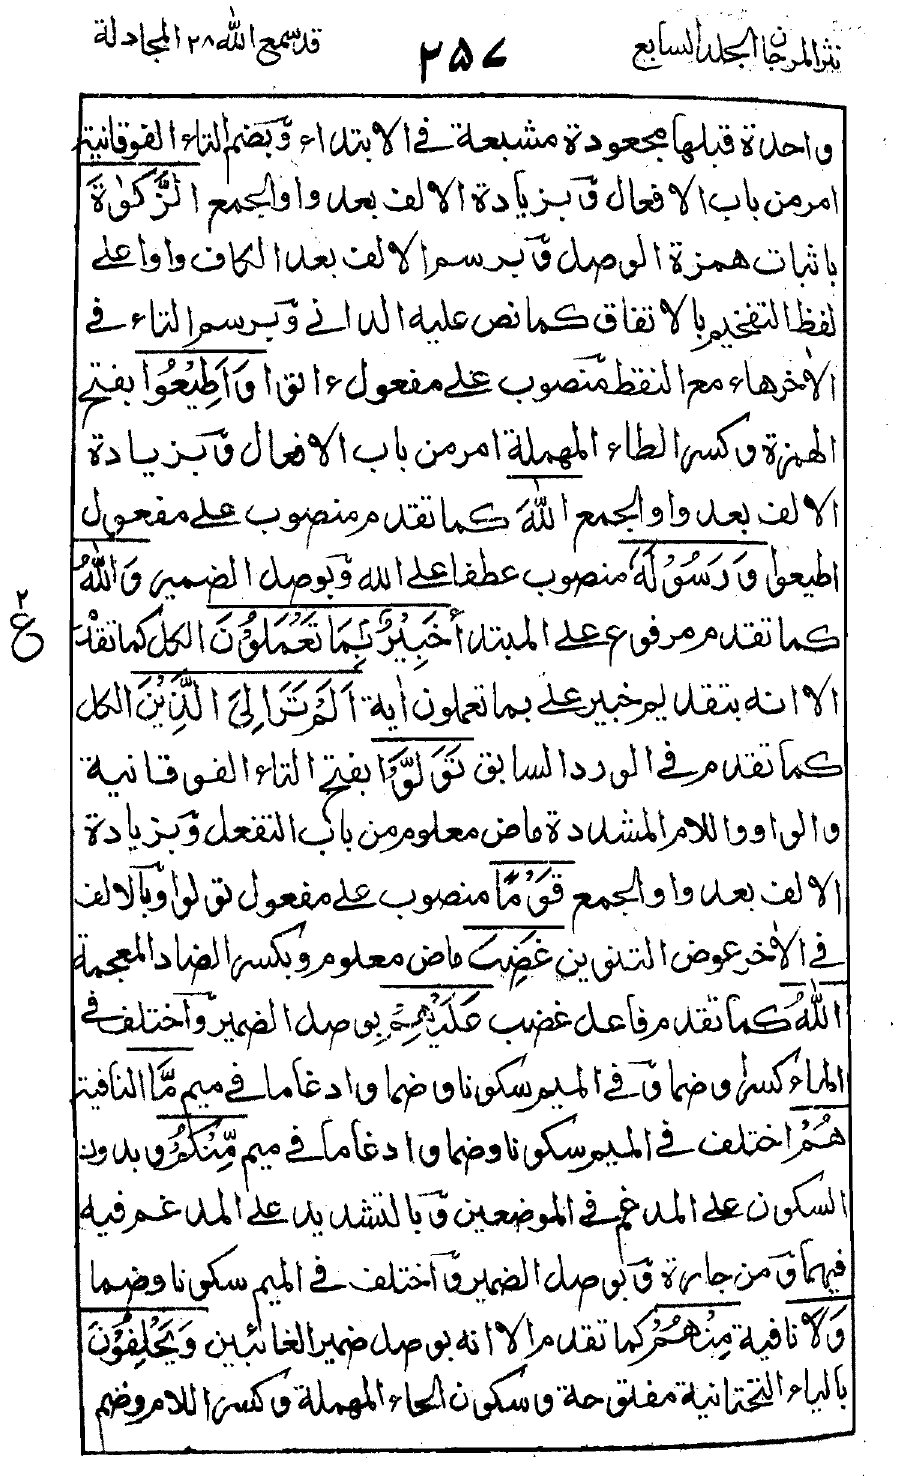 نثر المرجان الجلد السابع
٢٥٧
قد سمع الله ٢٨ المجادلة
واحدة قبلها مجعودة مشبعة في الابتداء وّبضم التاء الفوقانية
امر من باب الافعال وّبزيادة الالف بعد واو الجمع الزَّكٰوةَ
باثبات همزة الوصل وّبرسم الالف بعد الكاف واوا على
لفظ التفخيم بالاتفاق كما نص عليه الداني وّبرسم التاء في
الاٰخرهاء مع النقط منصوب على مفعول ءاتوا وَاَطِيْعُوا بفتح
الهمزة وكسر الطاء المهملة امر من باب الافعال وّبزيادة
الالف بعد واو الجمع اللّٰهَ كما تقدم منصوب على مفعول
اطيعوا وَرَسُوْلَهٗ منصوب عطفا على الله وّبوصل الضمير وَاللّٰهُ
كما تقدم مرفوع على المبتدأ خَبِيْرٌۢ بِمَا تَعْمَلُوْنَ الكل كما تقدم
الا انه بتقديم خبير على بما تعملون اٰية اَلَمْ تَرَ اِلَى الَّذِيْنَ الكل
كما تقدم في الورد السابق تَوَلَّوْا بفتح التاء الفوقانية
والواو واللام المشددة ماض معلوم من باب التفعل وّبزيادة
الالف بعد واو الجمع قَوْمًا منصوب على مفعول تولوا وّبالالف
في الاٰخر عوض التنوين غَضِبَ ماض معلوم وبكسر الضاد المعجمة
اللّٰهُ كما تقدم فاعل غضب عَلَيْهِمْ بوصل الضمير وّاختلف في
الهاء كسرا وضما وّفي الميم سكونا وضما وادغاما في ميم مَّا النافية
هُمْ اختلف في الميم سكونا وضما وادغاما في ميم مِّنْكُمْ وبدون
السكون على المدغم في الموضعين وّبالتشديد على المدغم فيه
فيهما وّمن جارة وّبوصل الضمير وّاختلف في الميم سكونا وضما
وَلَا نافية مِنْهُمْ كما تقدم الا انه بوصل ضمير الغائبين وَيَحْلِفُوْنَ
بالياء التحتانية مفتوحة وسكون الحاء المهملة وكسر اللام وضم
٢
ع